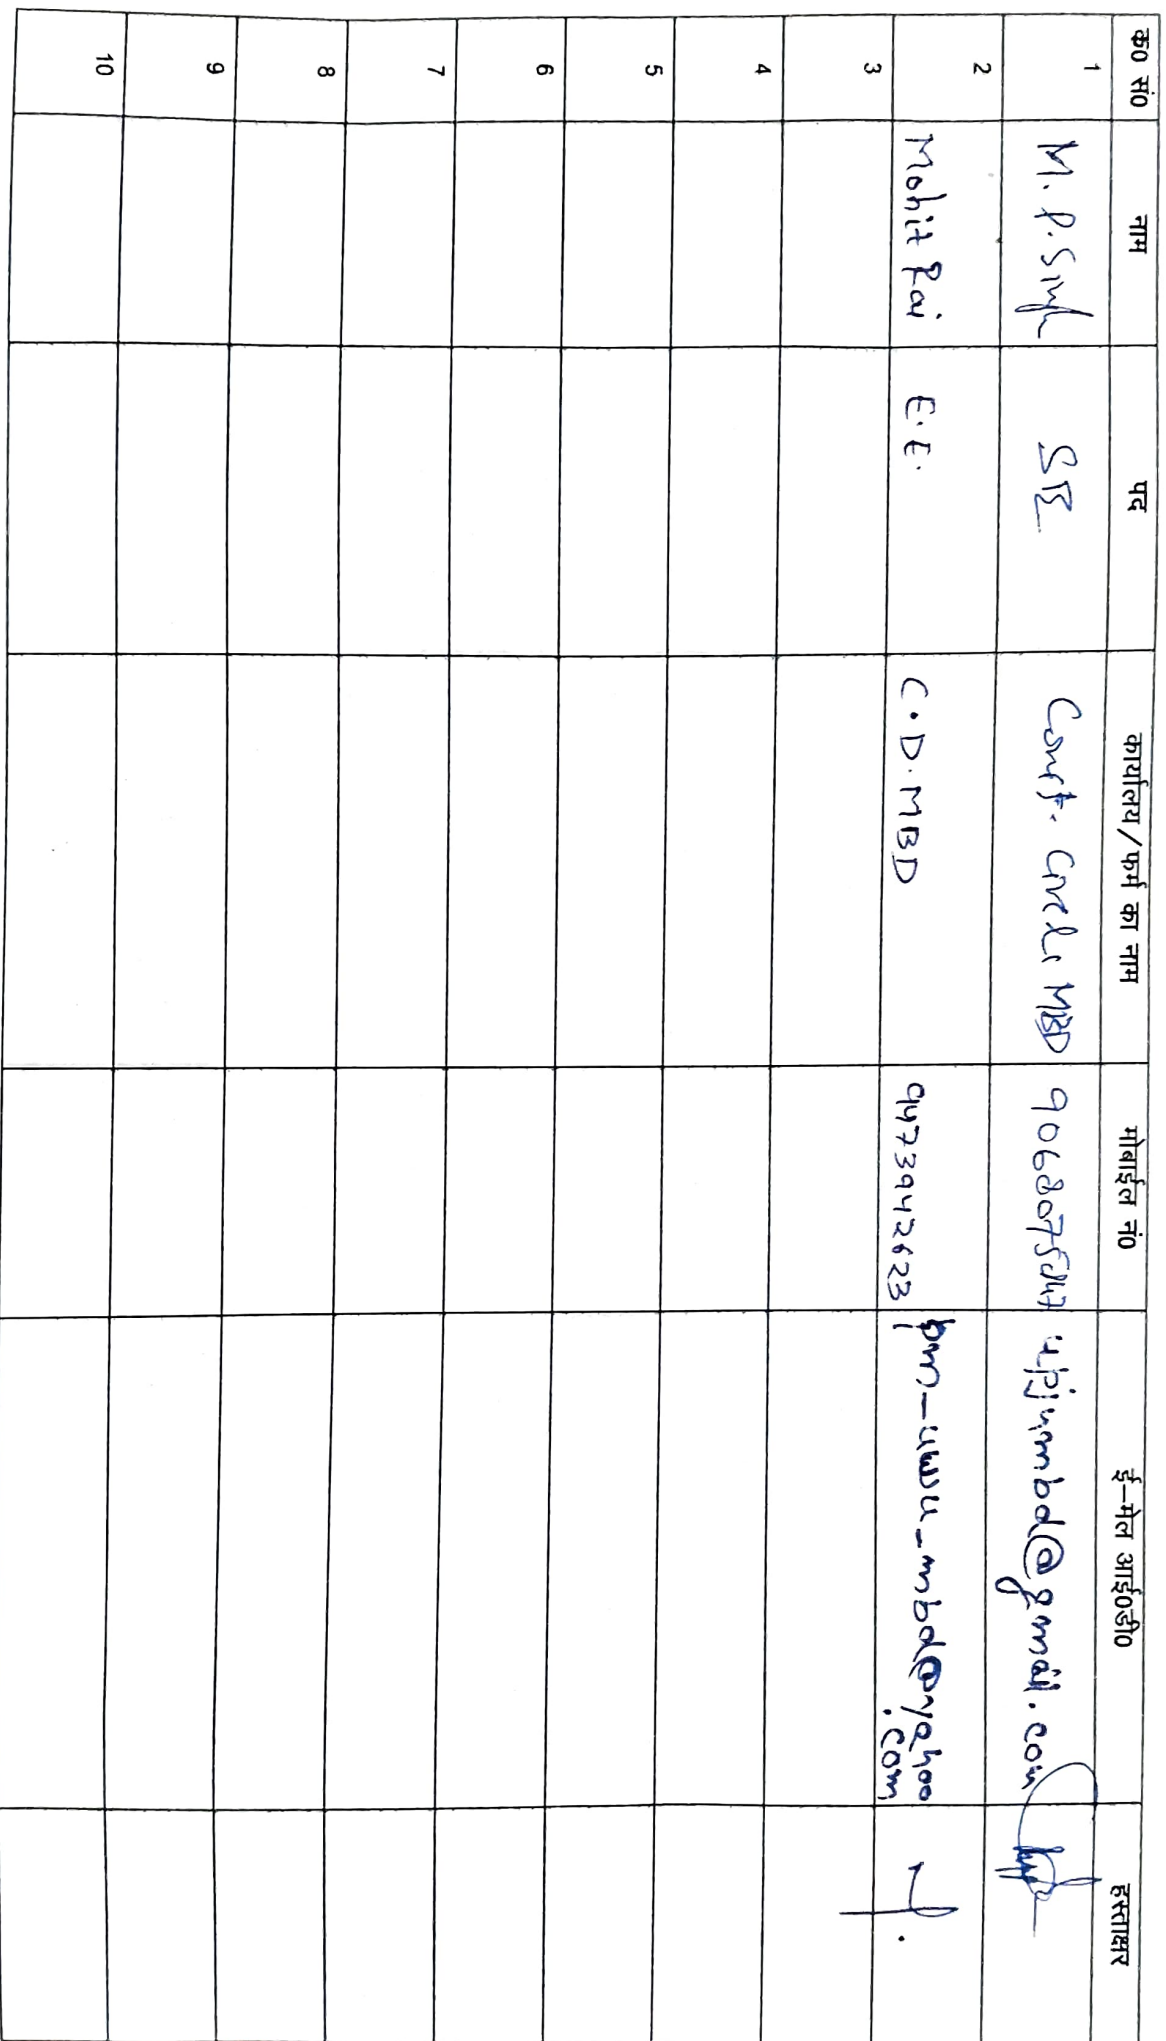 क0 सं0 नाम पद कार्यालय/फर्म का नाम मोबाईल नं0 ई-मेल आई0डी0 हस्ताक्षर
1 M. P. Singh SE Const. Circle MBD 9068075847 upjnmbd@gmail.com
2 Mohit Rai E.E. C.D.MBD 9473942623 pm-uwsu-mbd@yahoo
.com
3
4
5
6
7
8
9
10